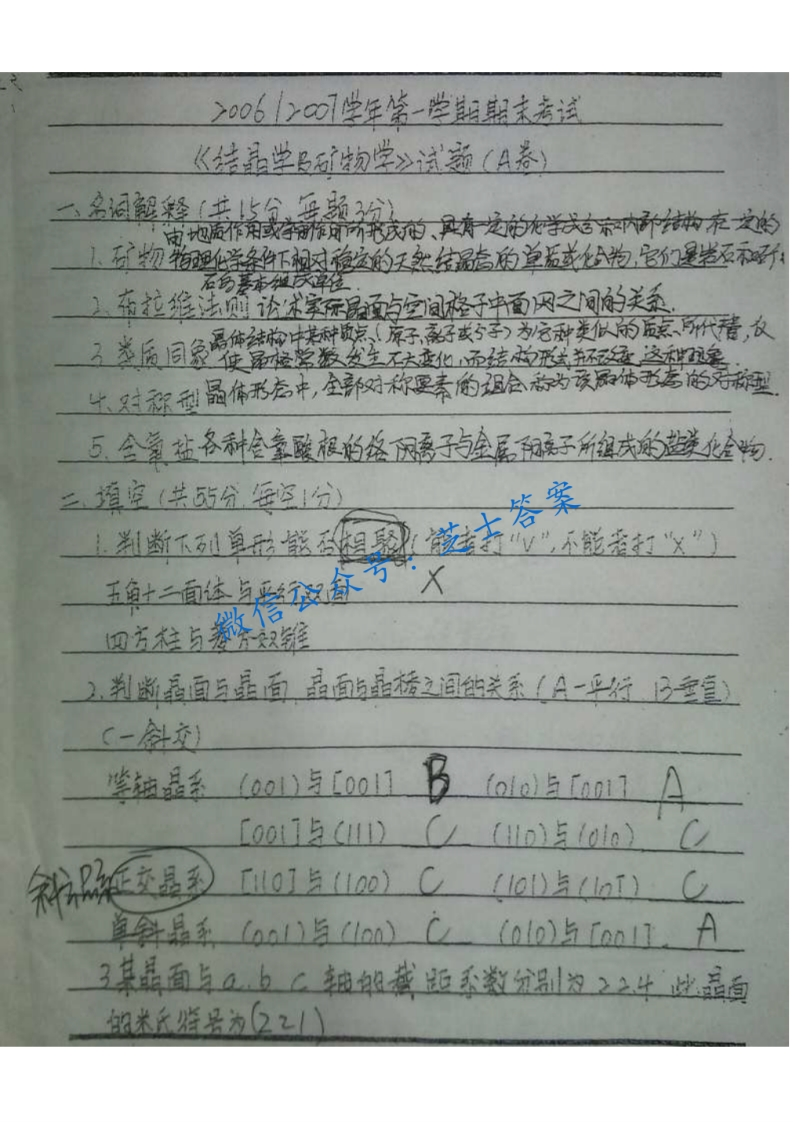 2006/2007学年第一学期期末考试
《结晶学与矿物学》试题(A卷)
一、名词解释(共15分 每题3分)
由地质作用或宇宙作用所形成的、具有一定的化学成分和内部结构 在一定的
1、矿物 物理化学条件下相对稳定的天然结晶态的单质或化合物,它们是岩石和矿
石的基本组成单位.
2、布拉维法则 论述实际晶面与空间格子中面网之间的关系.
晶体结构中某种质点(原子、离子或分子)为它种类似的质点所代替,仅
3 类质同象 使晶格常数发生不大变化,而结构形式并不改变 这种现象.
4、对称型 晶体形态中,全部对称要素的组合,称为该晶体形态的对称型.
5、含氧盐 各种含氧酸根的络阴离子与金属阳离子所组成的盐类化合物.
二、填空(共55分,每空1分)
1.判断下列单形能否相聚(能者打"V",不能者打"X")
五角十二面体与平行双面 X
四方柱与 方双锥
2、判断晶面与晶面,晶面与晶棱之间的关系(A—平行 B—垂直)
C—斜交)
等轴晶系 (001)与[001] B (010)与[001] A
[001]与(111) C (110)与(010) C
斜方晶系 正交晶系 [110]与(100) C (101)与(101̄) C
单斜晶系 (001)与(100) C (010)与[001] A
3 某晶面与a.b c轴的截距系数分别为2 2.4 此晶面
的米氏符号为(221)
微信公众号:芝士答案